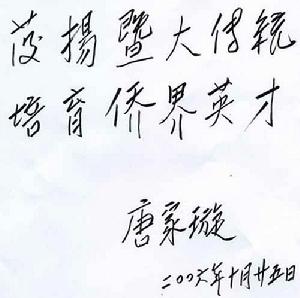 发揚暨大传统
培育侨界英才
唐家璇
二〇〇六年十月廿五日